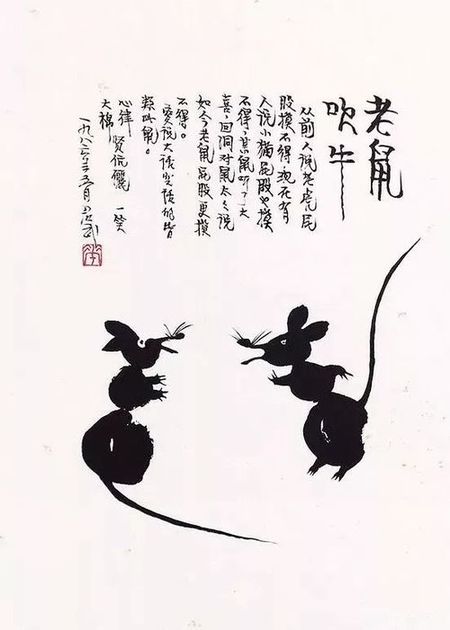 老鼠
吹牛
从前人说老虎屁
股摸不得，现在有
人说小猫屁股也摸
不得，某鼠听了大
喜，回洞对鼠太太说
如今老鼠屁股更摸
不得。
爱说大话空话的皆
类此鼠。
心律
大棉 贤伉俪 一笑
一九八三年五月君武